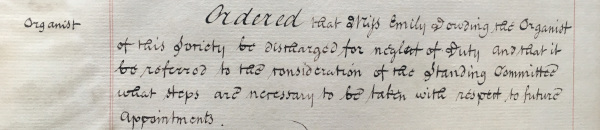 Organist
Ordered that Miss Emily Dowding the Organist
of this Society be discharged for neglect of Duty and that it
be referred to the consideration of the Standing Committee
what steps are necessary to be taken with respect to future
Appointments.